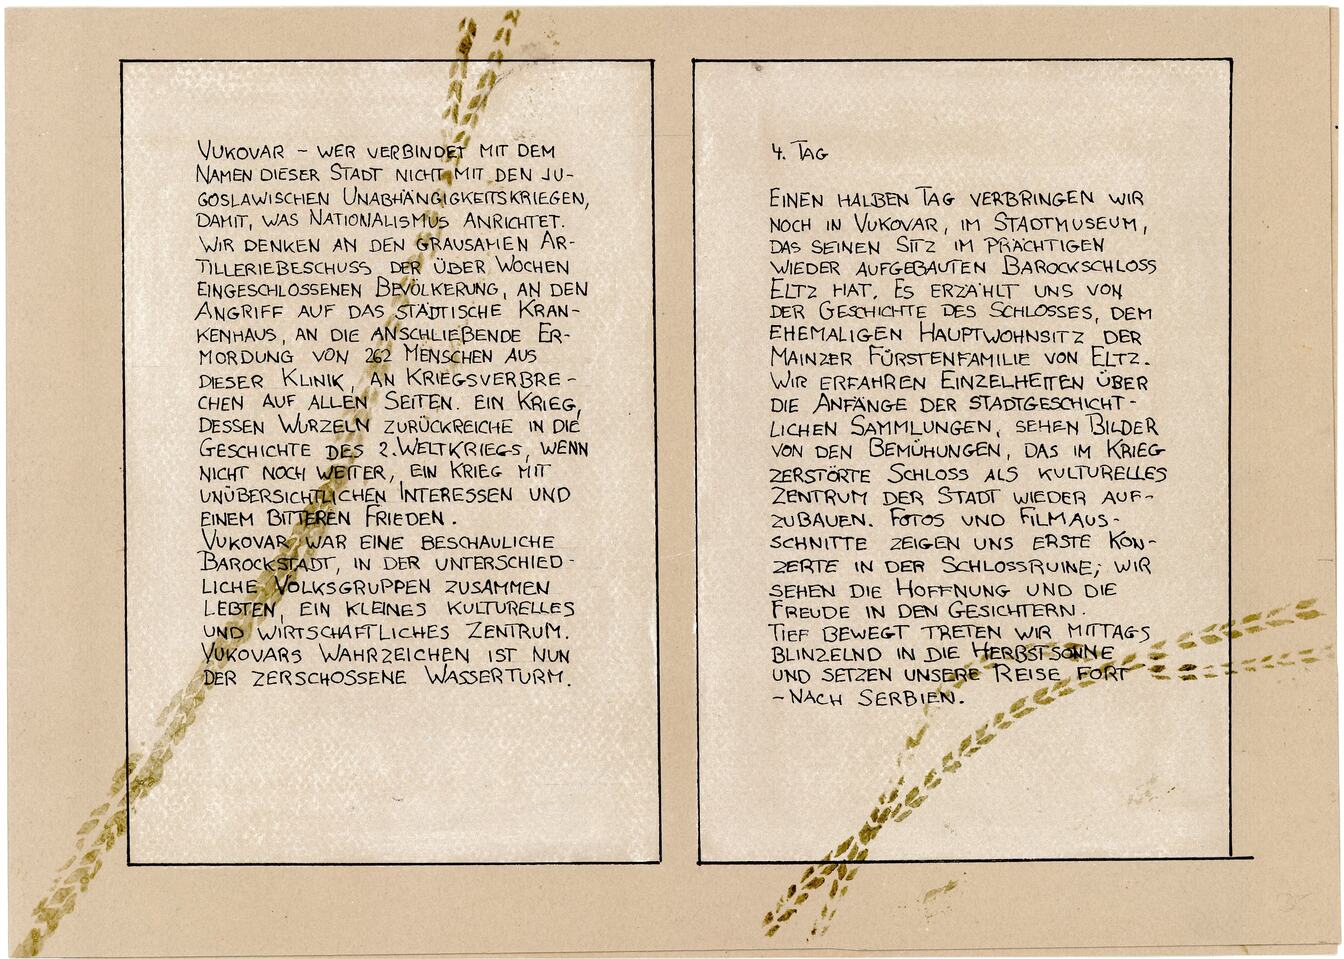 VUKOVAR – WER VERBINDET MIT DEM
NAMEN DIESER STADT NICHT MIT DEN JU-
GOSLAWISCHEN UNABHÄNGIGKEITSKRIEGEN,
DAMIT, WAS NATIONALISMUS ANRICHTET.
WIR DENKEN AN DEN GRAUSAMEN AR-
TILLERIEBESCHUSS DER ÜBER WOCHEN
EINGESCHLOSSENEN BEVÖLKERUNG, AN DEN
ANGRIFF AUF DAS STÄDTISCHE KRAN-
KENHAUS, AN DIE ANSCHLIEßENDE ER-
MORDUNG VON 262 MENSCHEN AUS
DIESER KLINIK, AN KRIEGSVERBRE-
CHEN AUF ALLEN SEITEN. EIN KRIEG,
DESSEN WURZELN ZURÜCKREICHE IN DIE
GESCHICHTE DES 2. WELTKRIEGS, WENN
NICHT NOCH WEITER, EIN KRIEG MIT
UNÜBERSICHTLICHEN INTERESSEN UND
EINEM BITTEREN FRIEDEN.
VUKOVAR WAR EINE BESCHAULICHE
BAROCKSTADT, IN DER UNTERSCHIED-
LICHE VOLKSGRUPPEN ZUSAMMEN
LEBTEN, EIN KLEINES KULTURELLES
UND WIRTSCHAFTLICHES ZENTRUM.
VUKOVARS WAHRZEICHEN IST NUN
DER ZERSCHOSSENE WASSERTURM.
4. TAG
EINEN HALBEN TAG VERBRINGEN WIR
NOCH IN VUKOVAR, IM STADTMUSEUM,
DAS SEINEN SITZ IM PRÄCHTIGEN
WIEDER AUFGEBAUTEN BAROCKSCHLOSS
ELTZ HAT. ES ERZÄHLT UNS VON
DER GESCHICHTE DES SCHLOSSES, DEM
EHEMALIGEN HAUPTWOHNSITZ DER
MAINZER FÜRSTENFAMILIE VON ELTZ.
WIR ERFAHREN EINZELHEITEN ÜBER
DIE ANFÄNGE DER STADTGESCHICHT-
LICHEN SAMMLUNGEN, SEHEN BILDER
VON DEN BEMÜHUNGEN, DAS IM KRIEG
ZERSTÖRTE SCHLOSS ALS KULTURELLES
ZENTRUM DER STADT WIEDER AUF-
ZUBAUEN. FOTOS UND FILMAUS-
SCHNITTE ZEIGEN UNS ERSTE KON-
ZERTE IN DER SCHLOSSRUINE; WIR
SEHEN DIE HOFFNUNG UND DIE
FREUDE IN DEN GESICHTERN.
TIEF BEWEGT TRETEN WIR MITTAGS
BLINZELND IN DIE HERBSTSONNE
UND SETZEN UNSERE REISE FORT
– NACH SERBIEN.